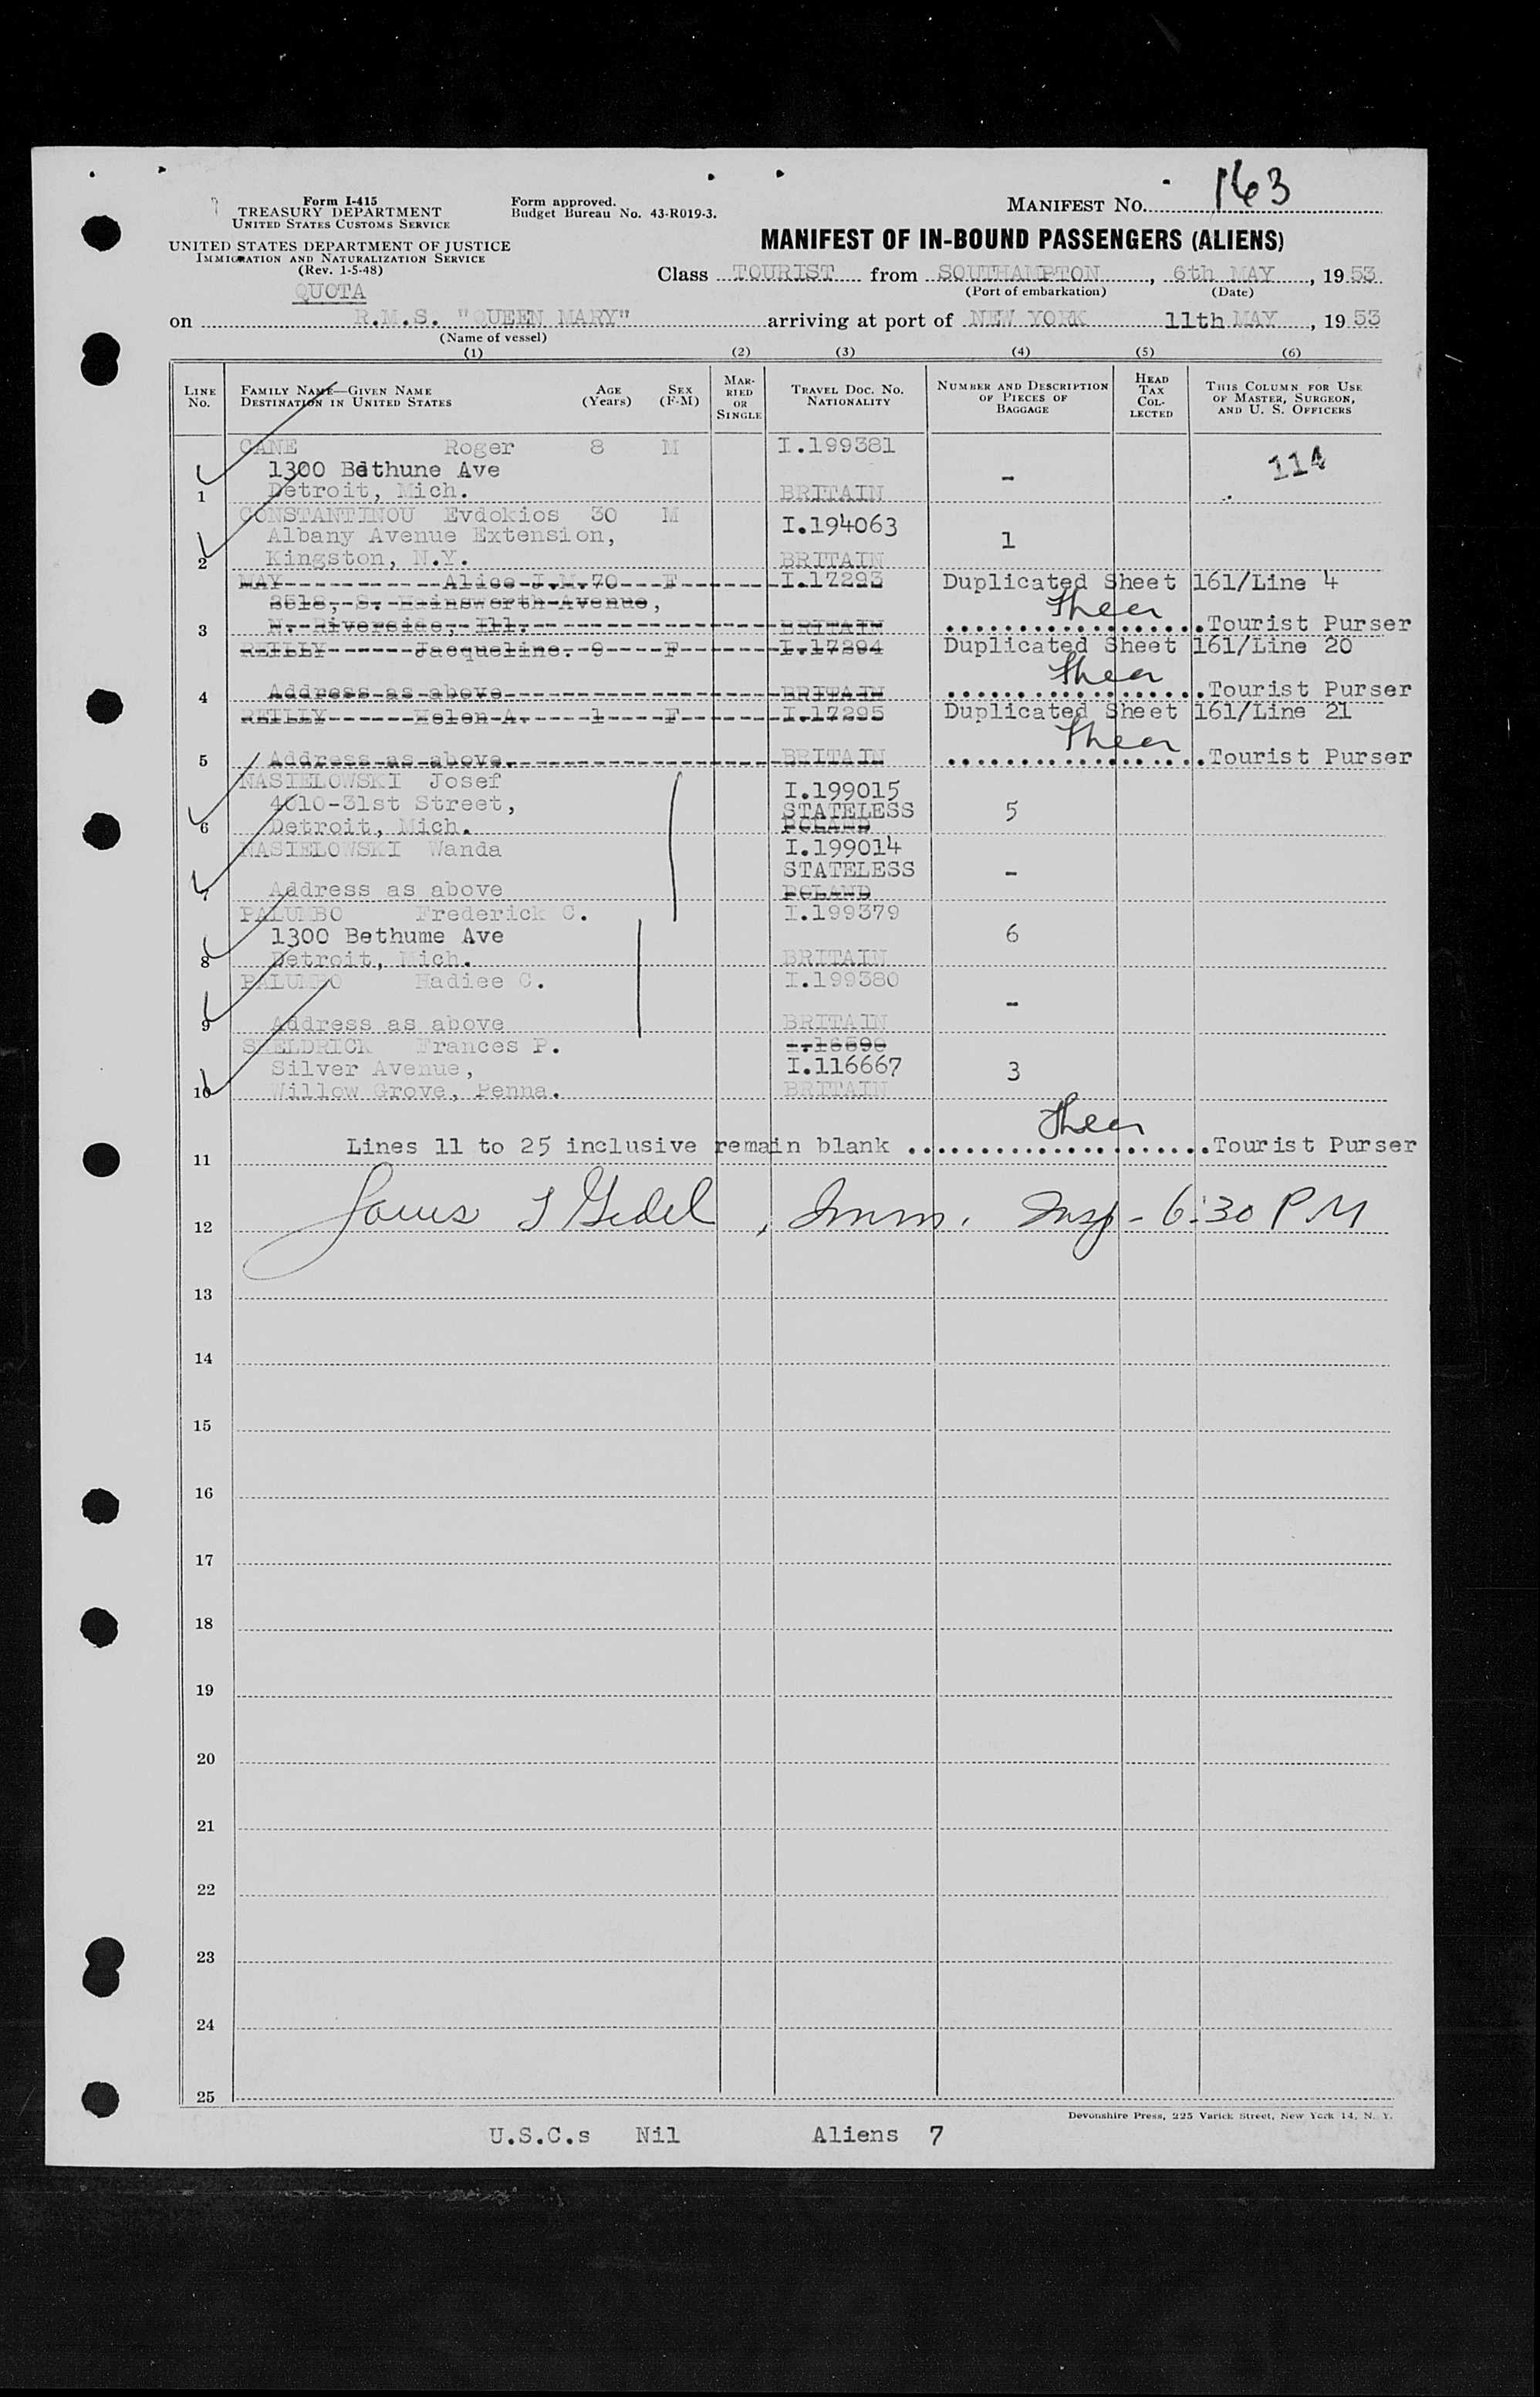 163
Form I-415
TREASURY DEPARTMENT
UNITED STATES CUSTOMS SERVICE
Form approved.
Budget Bureau No. 43-R019-3.
MANIFEST NO.
UNITED STATES DEPARTMENT OF JUSTICE
IMMIGRATION AND NATURALIZATION SERVICE
(Rev. 1-5-48)
MANIFEST OF IN-BOUND PASSENGERS (ALIENS)
QUOTA
Class TOURIST from SOUTHAMPTON, 6th MAY, 1953
(Port of embarkation) (Date)
on R.M.S. "QUEEN MARY" arriving at port of NEW YORK 11th MAY, 1953
(Name of vessel)
(1) (2) (3) (4) (5) (6)
LINE NO. FAMILY NAME—GIVEN NAME DESTINATION IN UNITED STATES AGE (Years) SEX (F-M) MARRIED OR SINGLE TRAVEL DOC. NO. NATIONALITY NUMBER AND DESCRIPTION OF PIECES OF BAGGAGE HEAD TAX COLLECTED THIS COLUMN FOR USE OF MASTER, SURGEON, AND U. S. OFFICERS
CANE Roger 8 M I.199381
1300 Bethune Ave - 114
1 Detroit, Mich. BRITAIN
CONSTANTINOU Evdokios 30 M I.194063
Albany Avenue Extension, 1
2 Kingston, N.Y. BRITAIN
MAY Alice J.M. 70 F I.17293 Duplicated Sheet 161/Line 4
3518, S. Hainsworth Avenue,
3 N. Riverside, Ill. BRITAIN Tourist Purser
REILLY Jacqueline. 9 F I.17294 Duplicated Sheet 161/Line 20
4 Address as above BRITAIN Tourist Purser
REILLY Helen A. 1 F I.17295 Duplicated Sheet 161/Line 21
5 Address as above BRITAIN Tourist Purser
NASIELOWSKI Josef I.199015
4010-31st Street, STATELESS 5
6 Detroit, Mich. POLAND
NASIELOWSKI Wanda I.199014
STATELESS -
7 Address as above POLAND
PALUMBO Frederick C. I.199379
1300 Bethume Ave 6
8 Detroit, Mich. BRITAIN
PALUMBO Hadiee C. I.199380
-
9 Address as above BRITAIN
SHELDRICK Frances P.
Silver Avenue, I.116667 3
10 Willow Grove, Penna. BRITAIN
11 Lines 11 to 25 inclusive remain blank Tourist Purser
12 Imm. Insp - 6:30 PM
13
14
15
16
17
18
19
20
21
22
23
24
25
Devonshire Press, 225 Varick Street, New York 14, N. Y.
U.S.C.s Nil Aliens 7